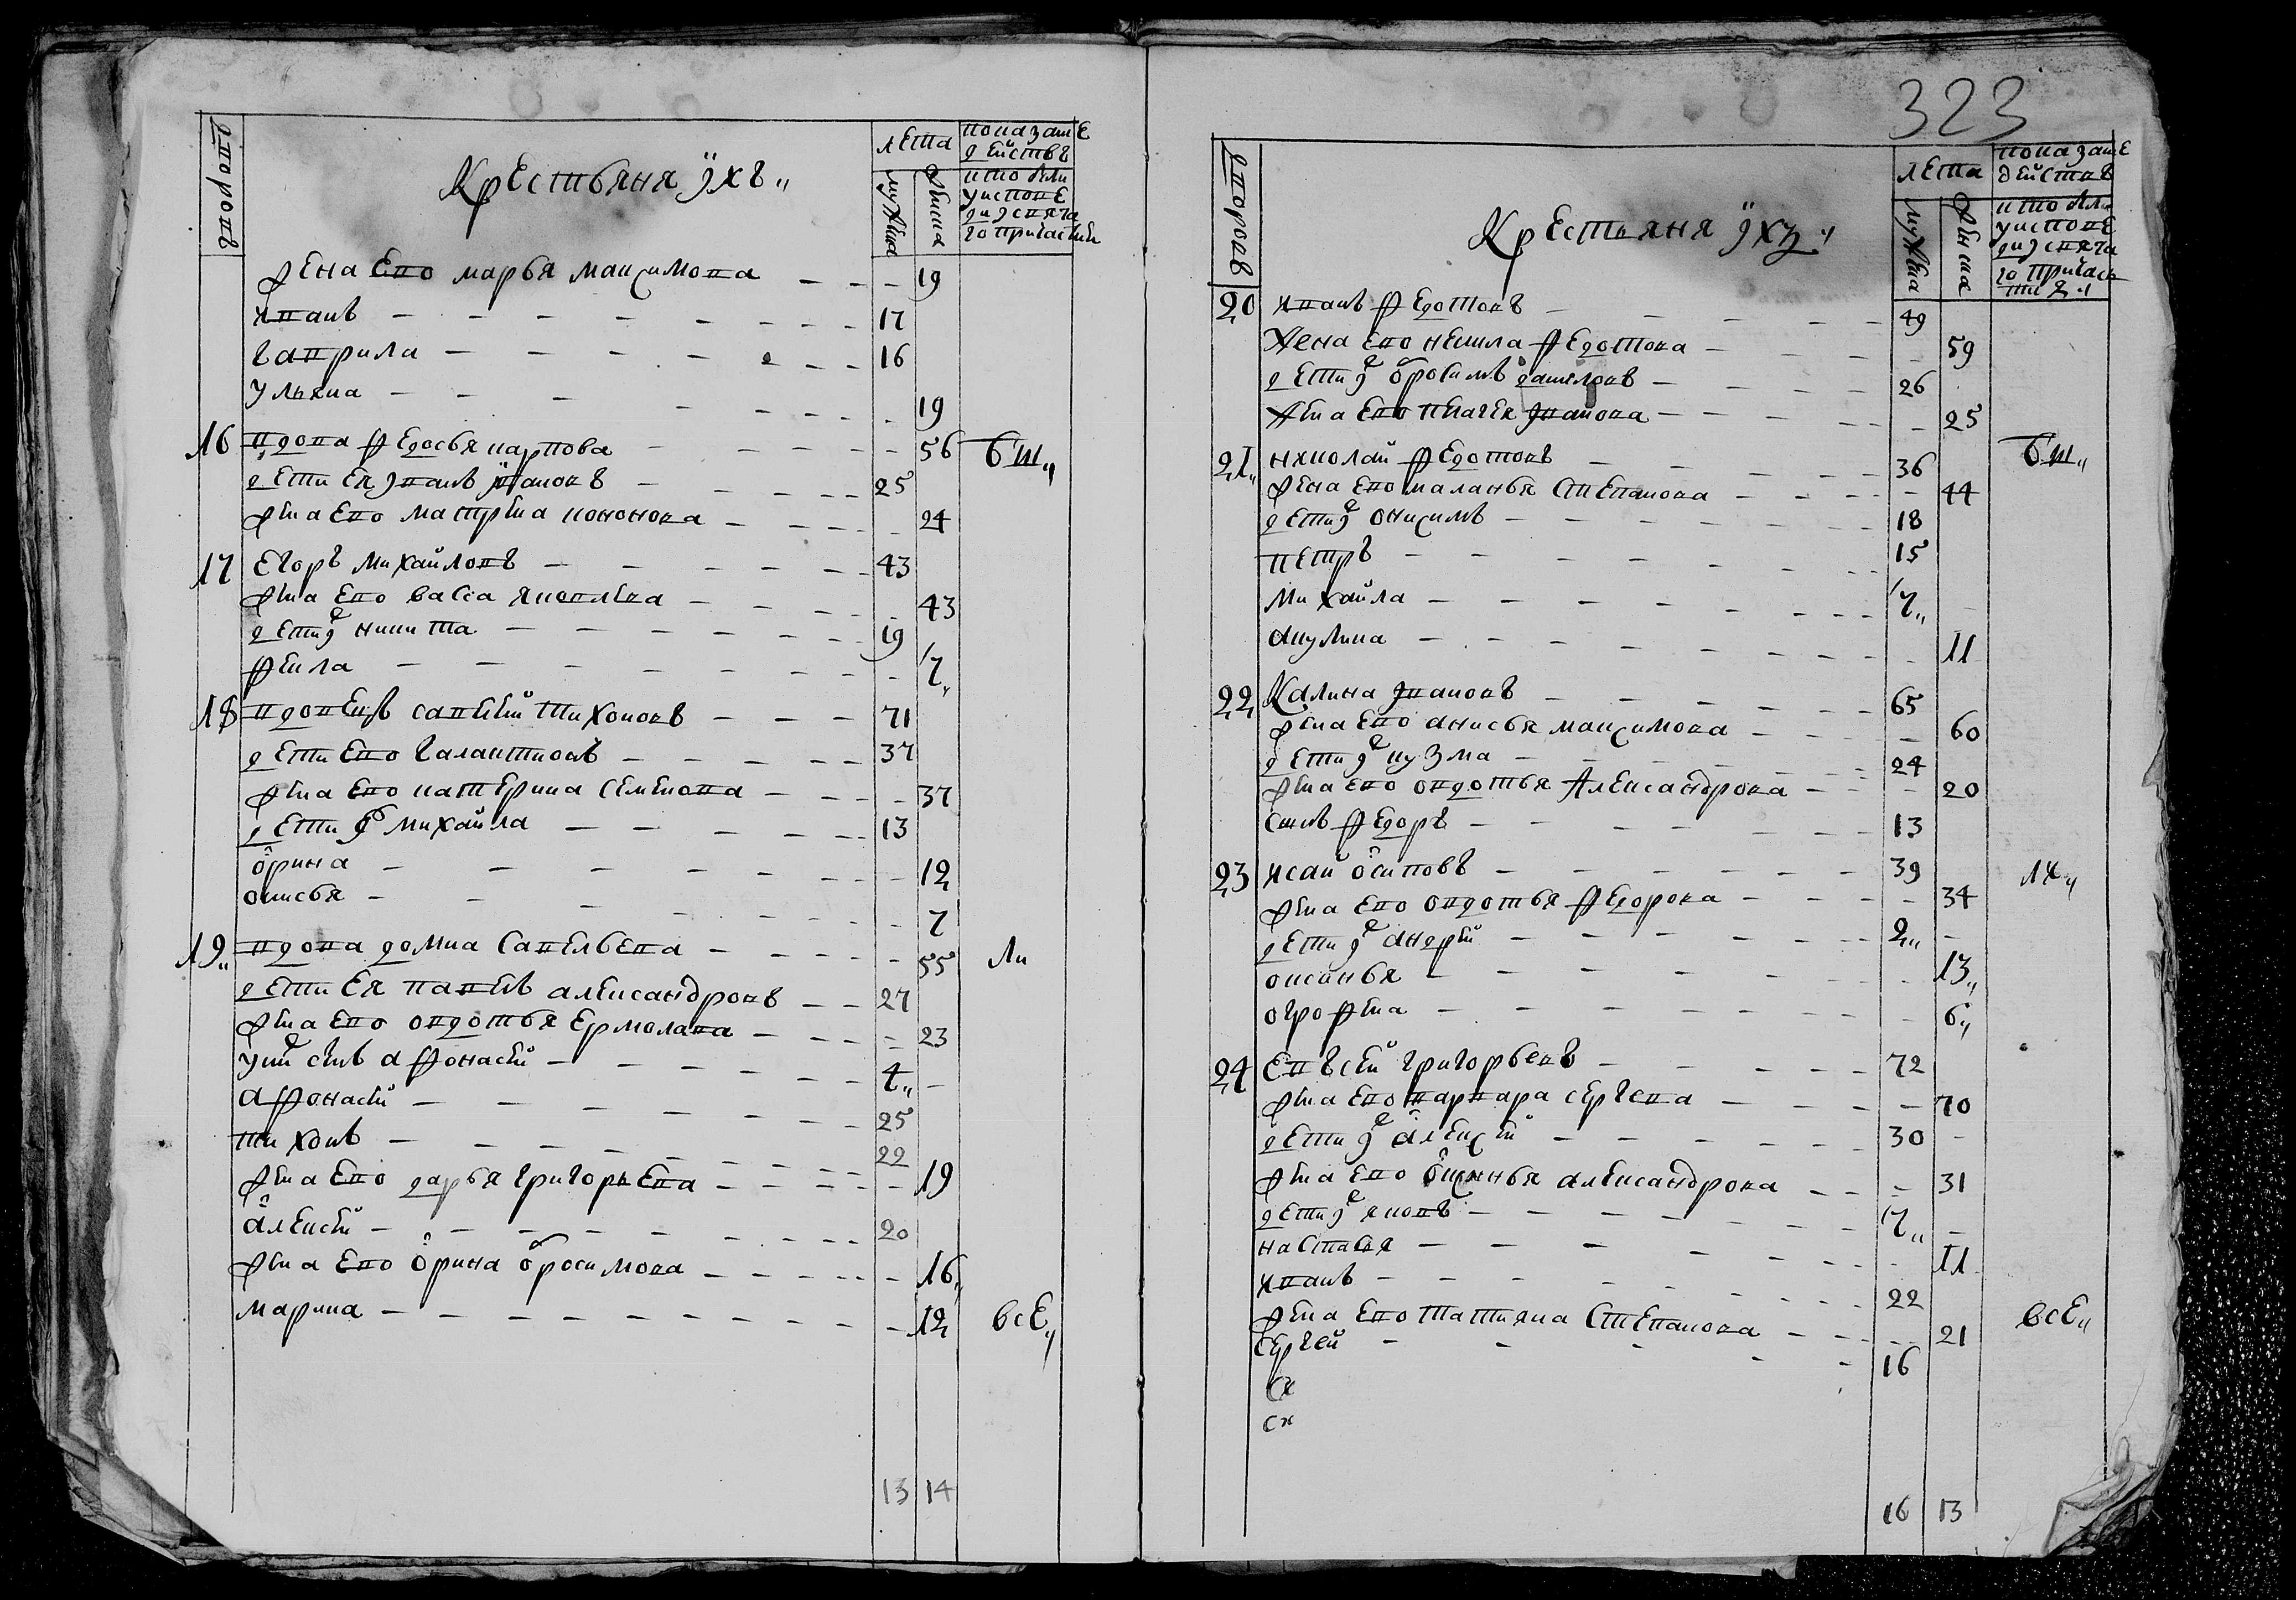 дворовъ
Крестьяня ихъ
лета
мужска
женска
показате
действъ
кто были
у испове
ди и свята
го причастия
жена ево марья максимова 19
иванъ 17
гаврила 16
ульяна 19
16 вдова федосья карпова 56
дети ея иванъ ивановъ 25
жена ево матрена кононова 24
17 Егоръ михайловъ 43
жена ево васса яковлева 43
дети их никита 19
фекла 7
18 вдовецъ савелей тихоновъ 71
дети ево галактионъ 37
жена ево катерина семенова 37
дети их михайла 13
орина 12
онисья 7
19 вдова домна савельева 55
дети ея павелъ александровъ 27
жена ево овдотья ермолава 23
у них сынъ афонасей 4
афонасей 25
тихонъ 22
жена ево дарья григорьева 19
алексей 20
жена ево орина обросимова 16
марина 12
все
13 14
323
дворовъ
Крестьяня ихъ
лета
мужска
женска
показате
действъ
кто были
у испове
ди и свята
го причас
тия
20 иванъ федотовъ 49
жена ево ненила федотова 59
26
жена ево пелагея иванова 25
21 николай федотовъ 36
жена ево маланья степанова 44
дети их онисимъ 18
петръ 15
михайла 7
акулина 11
22 Калина ивановъ 65
жена ево анисья максимова 60
дети их кузма 24
жена ево овдотья александрова 20
сынъ федоръ 13
23 исай осиповъ 39
жена ево овдотья федорова 34
дети их андрей 2
оксанья 13
огрофена 6
24 Евсей григорьевъ 72
жена ево варвара сергева 70
дети их алексей 30
жена ево александрова 31
дети их яковъ 7
настасья 11
иванъ 22
жена ево татияна степанова 21
сергей 16
си
си
все
16 13